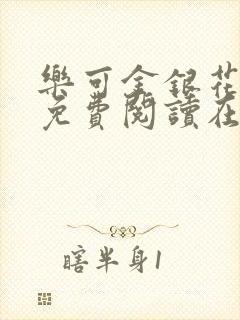 樂可金銀花
免費閱讀在
瞎半身1